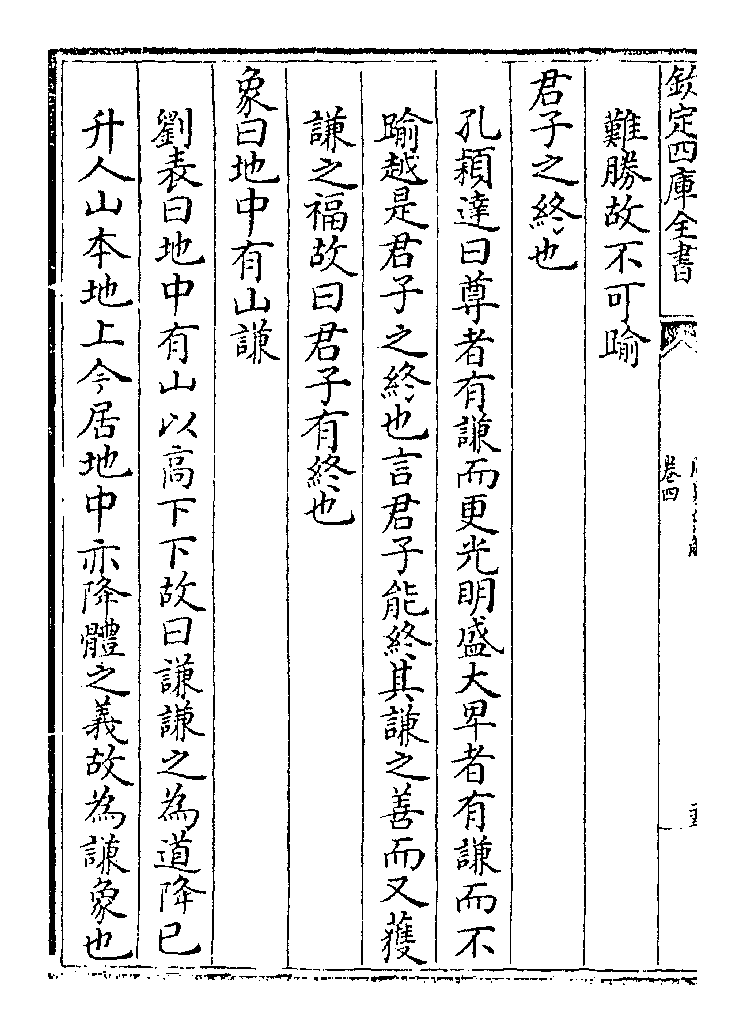 欽定四庫全書
卷四
難勝故不可踰
君子之終也
孔穎達曰尊者有謙而更光明盛大卑者有謙而不
踰越是君子之終也言君子能終其謙之善而又獲
謙之福故曰君子有終也
象曰地中有山謙
劉表曰地中有山以高下下故曰謙謙之為道降已
升人山本地上今居地中亦降體之義故為謙象也